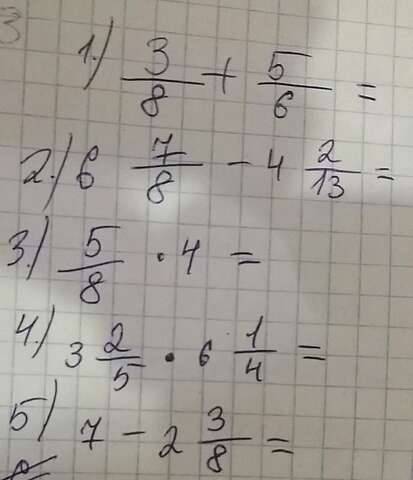 1.) 3/8 + 5/6 =
2.) 6 7/8 - 4 2/13 =
3.) 5/8 · 4 =
4.) 3 2/5 · 6 1/4 =
5) 7 - 2 3/8 =